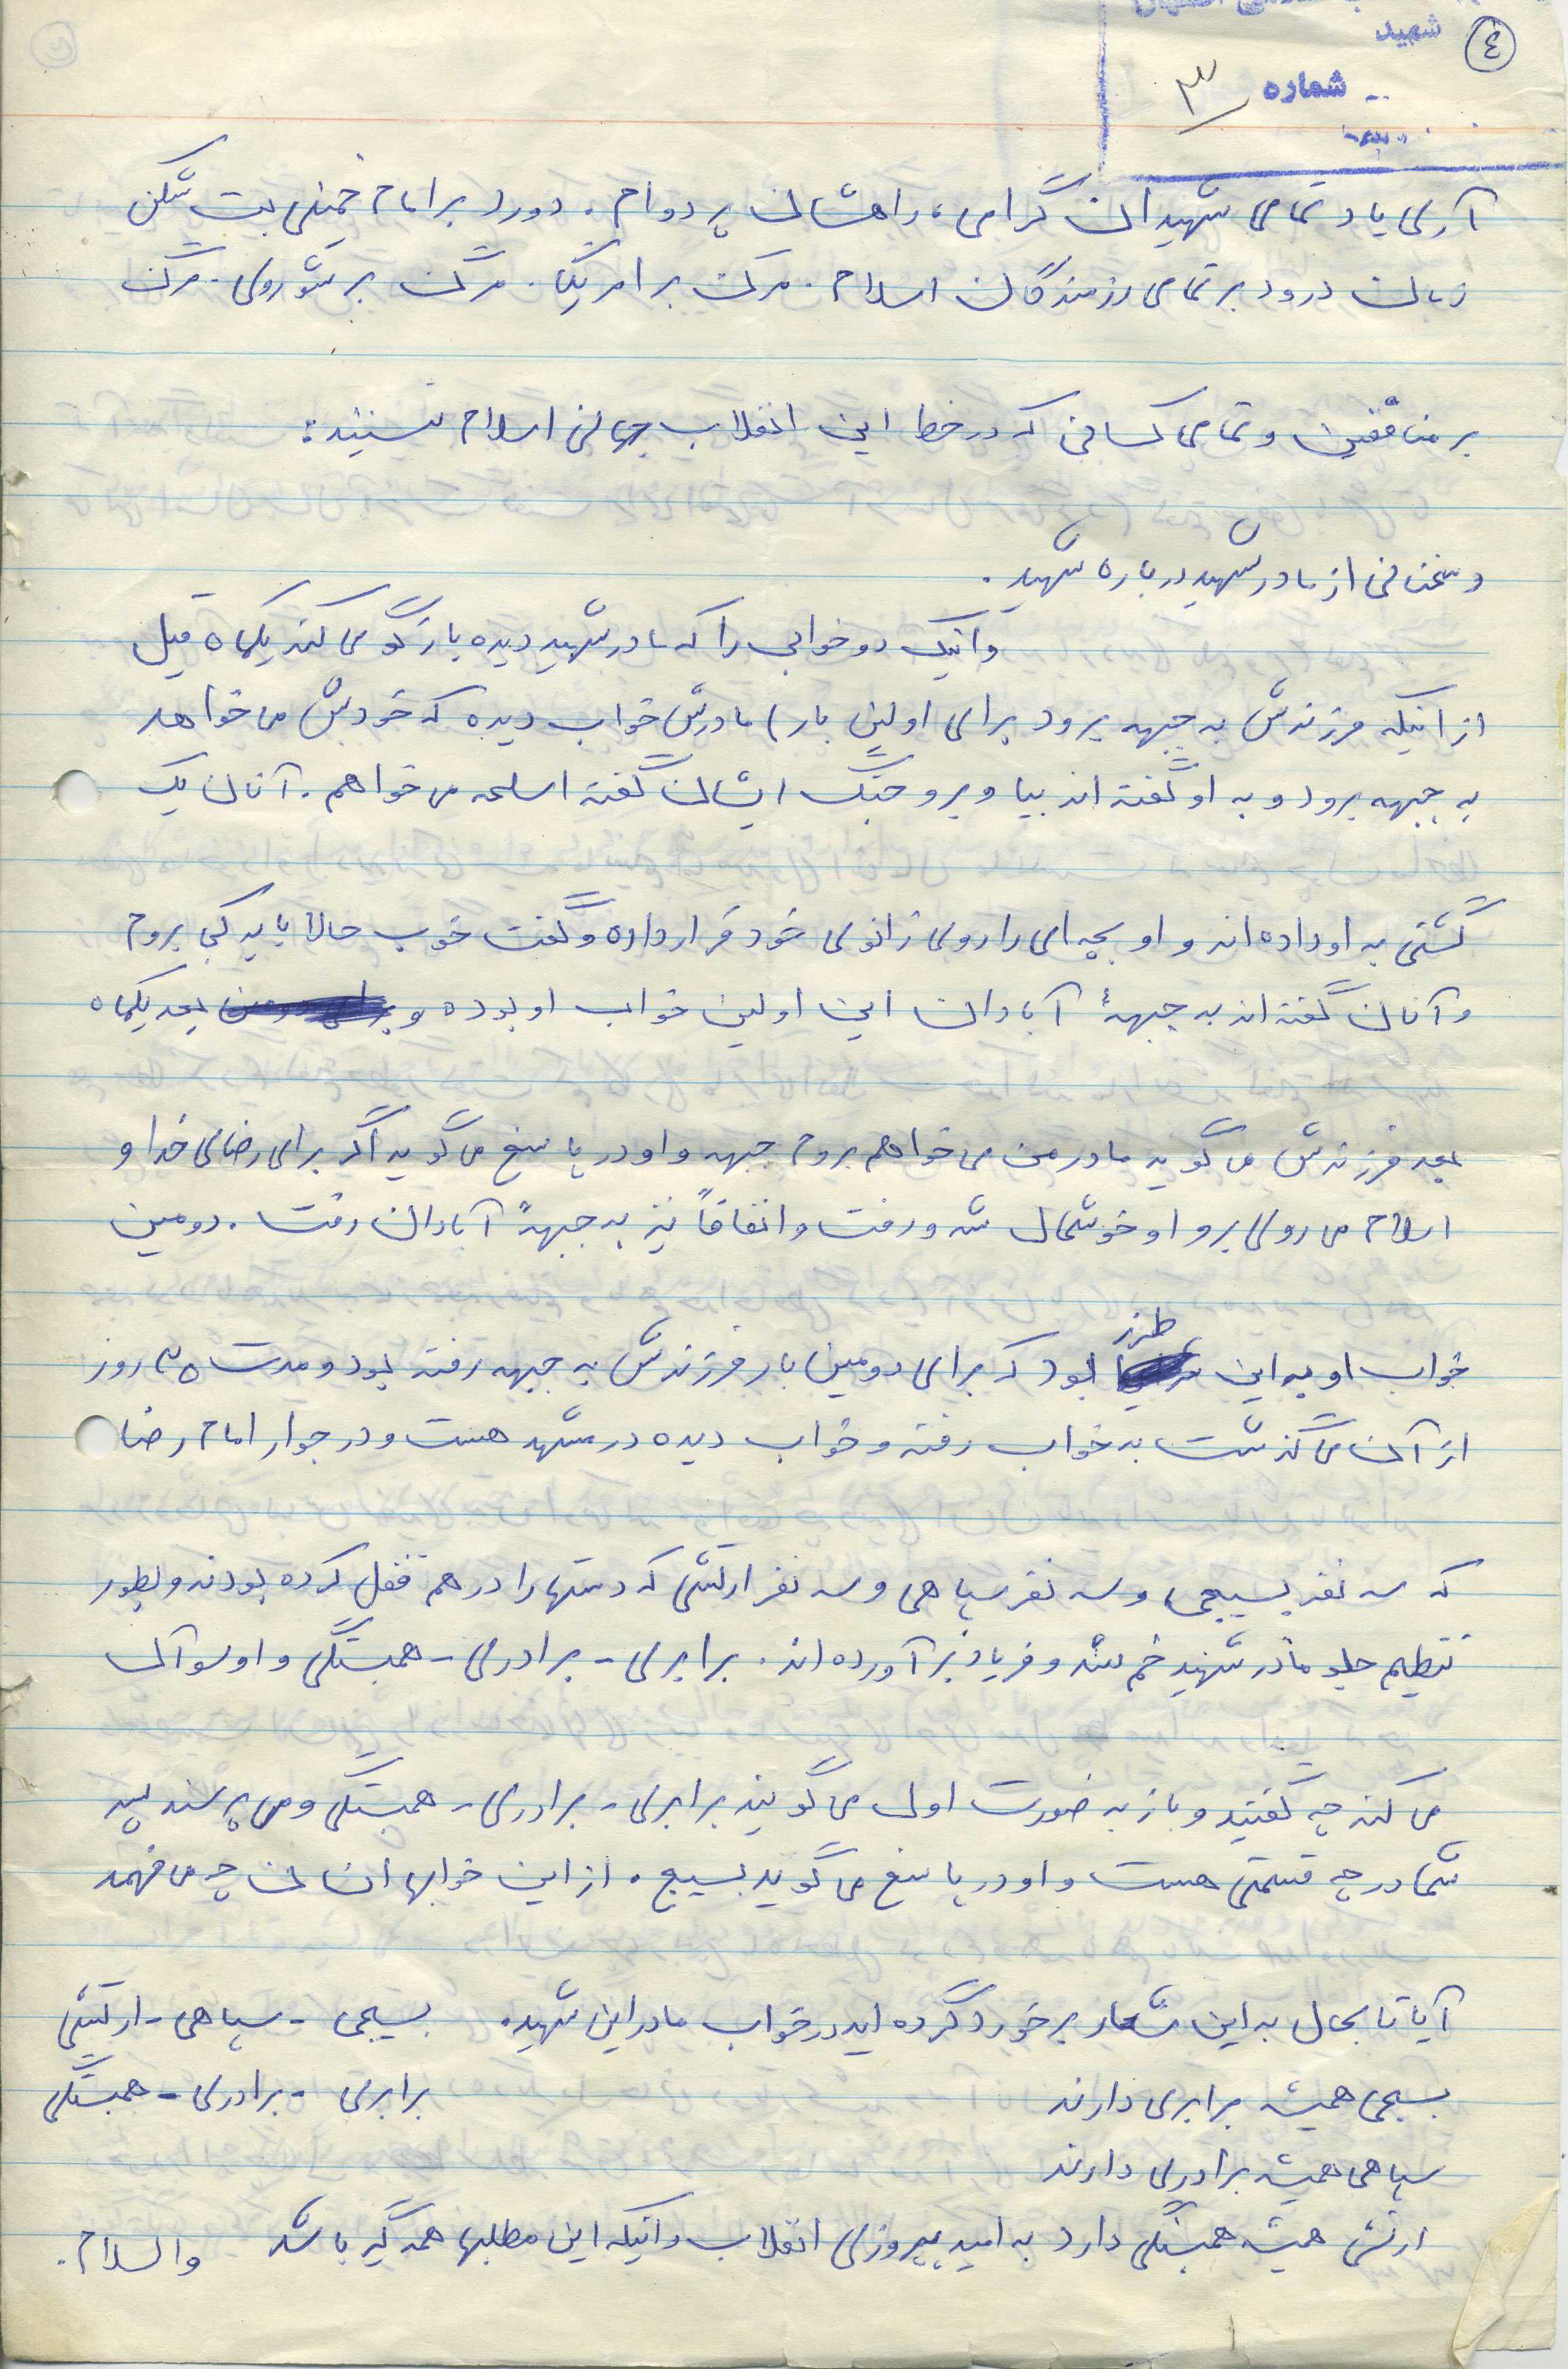 ٤
شهید
شماره ٣
آری یاد تمامی شهیدان گرامی، راهشان پر دوام. دورد بر امام خمینی بت شکن
زمان درود بر تمامی رزمندگان اسلام. مرگ بر امریکا. مرگ بر شوروی. مرگ
بر منافقین و تمامی کسانی که در خط این انقلاب جهانی اسلام نسیتند:
و سخنانی از مادر شهید درباره شهید.
و اینک دو خوابی را که مادر شهید دیده بازگو می کند یکماه قبل
از اینکه فرزندش به جبهه برود برای اولین بار) مادرش خواب دیده که خودش می خواهد
به جبهه برود و به او گفته اند بیا و برو جنگ ایشان گفته اسلحه می خواهم. آنان یک
کشتی به او داده اند و او بچه ای را روی زانوی خود قرار داده و گفت خوب حالا باید کجا بروم
و آنان گفته اند به جبههٔ آبادان این اولین خواب او بوده و بعد یکماه
بعد فرزندش می گوید مادر من می خواهم بروم جبهه و او در پاسخ می گوید اگر برای رضای خدا و
اسلام می روی برو او خوشحال شد و رفت و اتفاقاً نیز به جبههٔ آبادان رفت. دومین
خواب او به این طرز بود که برای دومین بار فرزندش به جبهه رفته بود و مدت ٣٥ روز
از آن می گذشت به خواب رفته و خواب دیده در مشهد هست و در جوار امام رضا
که سه نفر بسیجی و سه نفر سپاهی و سه نفر ارتشی که دستها را در هم قفل کرده بودند و بطور
تنظیم جلو مادر شهید خم شد و فریاد بر آورده اند. برابری - برادری - همبستگی و او سوآل
می کند چه گفتید و باز به صورت اول می گویند برابری - برادری - همبستگی و می پرسند پسر
شما در چه قسمتی هست و او در پاسخ می گوید بسیج. از این خوابها انسان چه می فهمد
آیا تا بحال به این شعار برخورد کرده اید در خواب مادر این شهید. بسیجی - سپاهی - ارتشی
بسیجی همیشه برابری دارند برابری - برادری - همبستگی
سپاهی همیشه برادری دارند
ارتش همیشه همبستگی دارد به امید پیروزی انقلاب و اینکه این مطلبها همه گیر باشد والسلام.